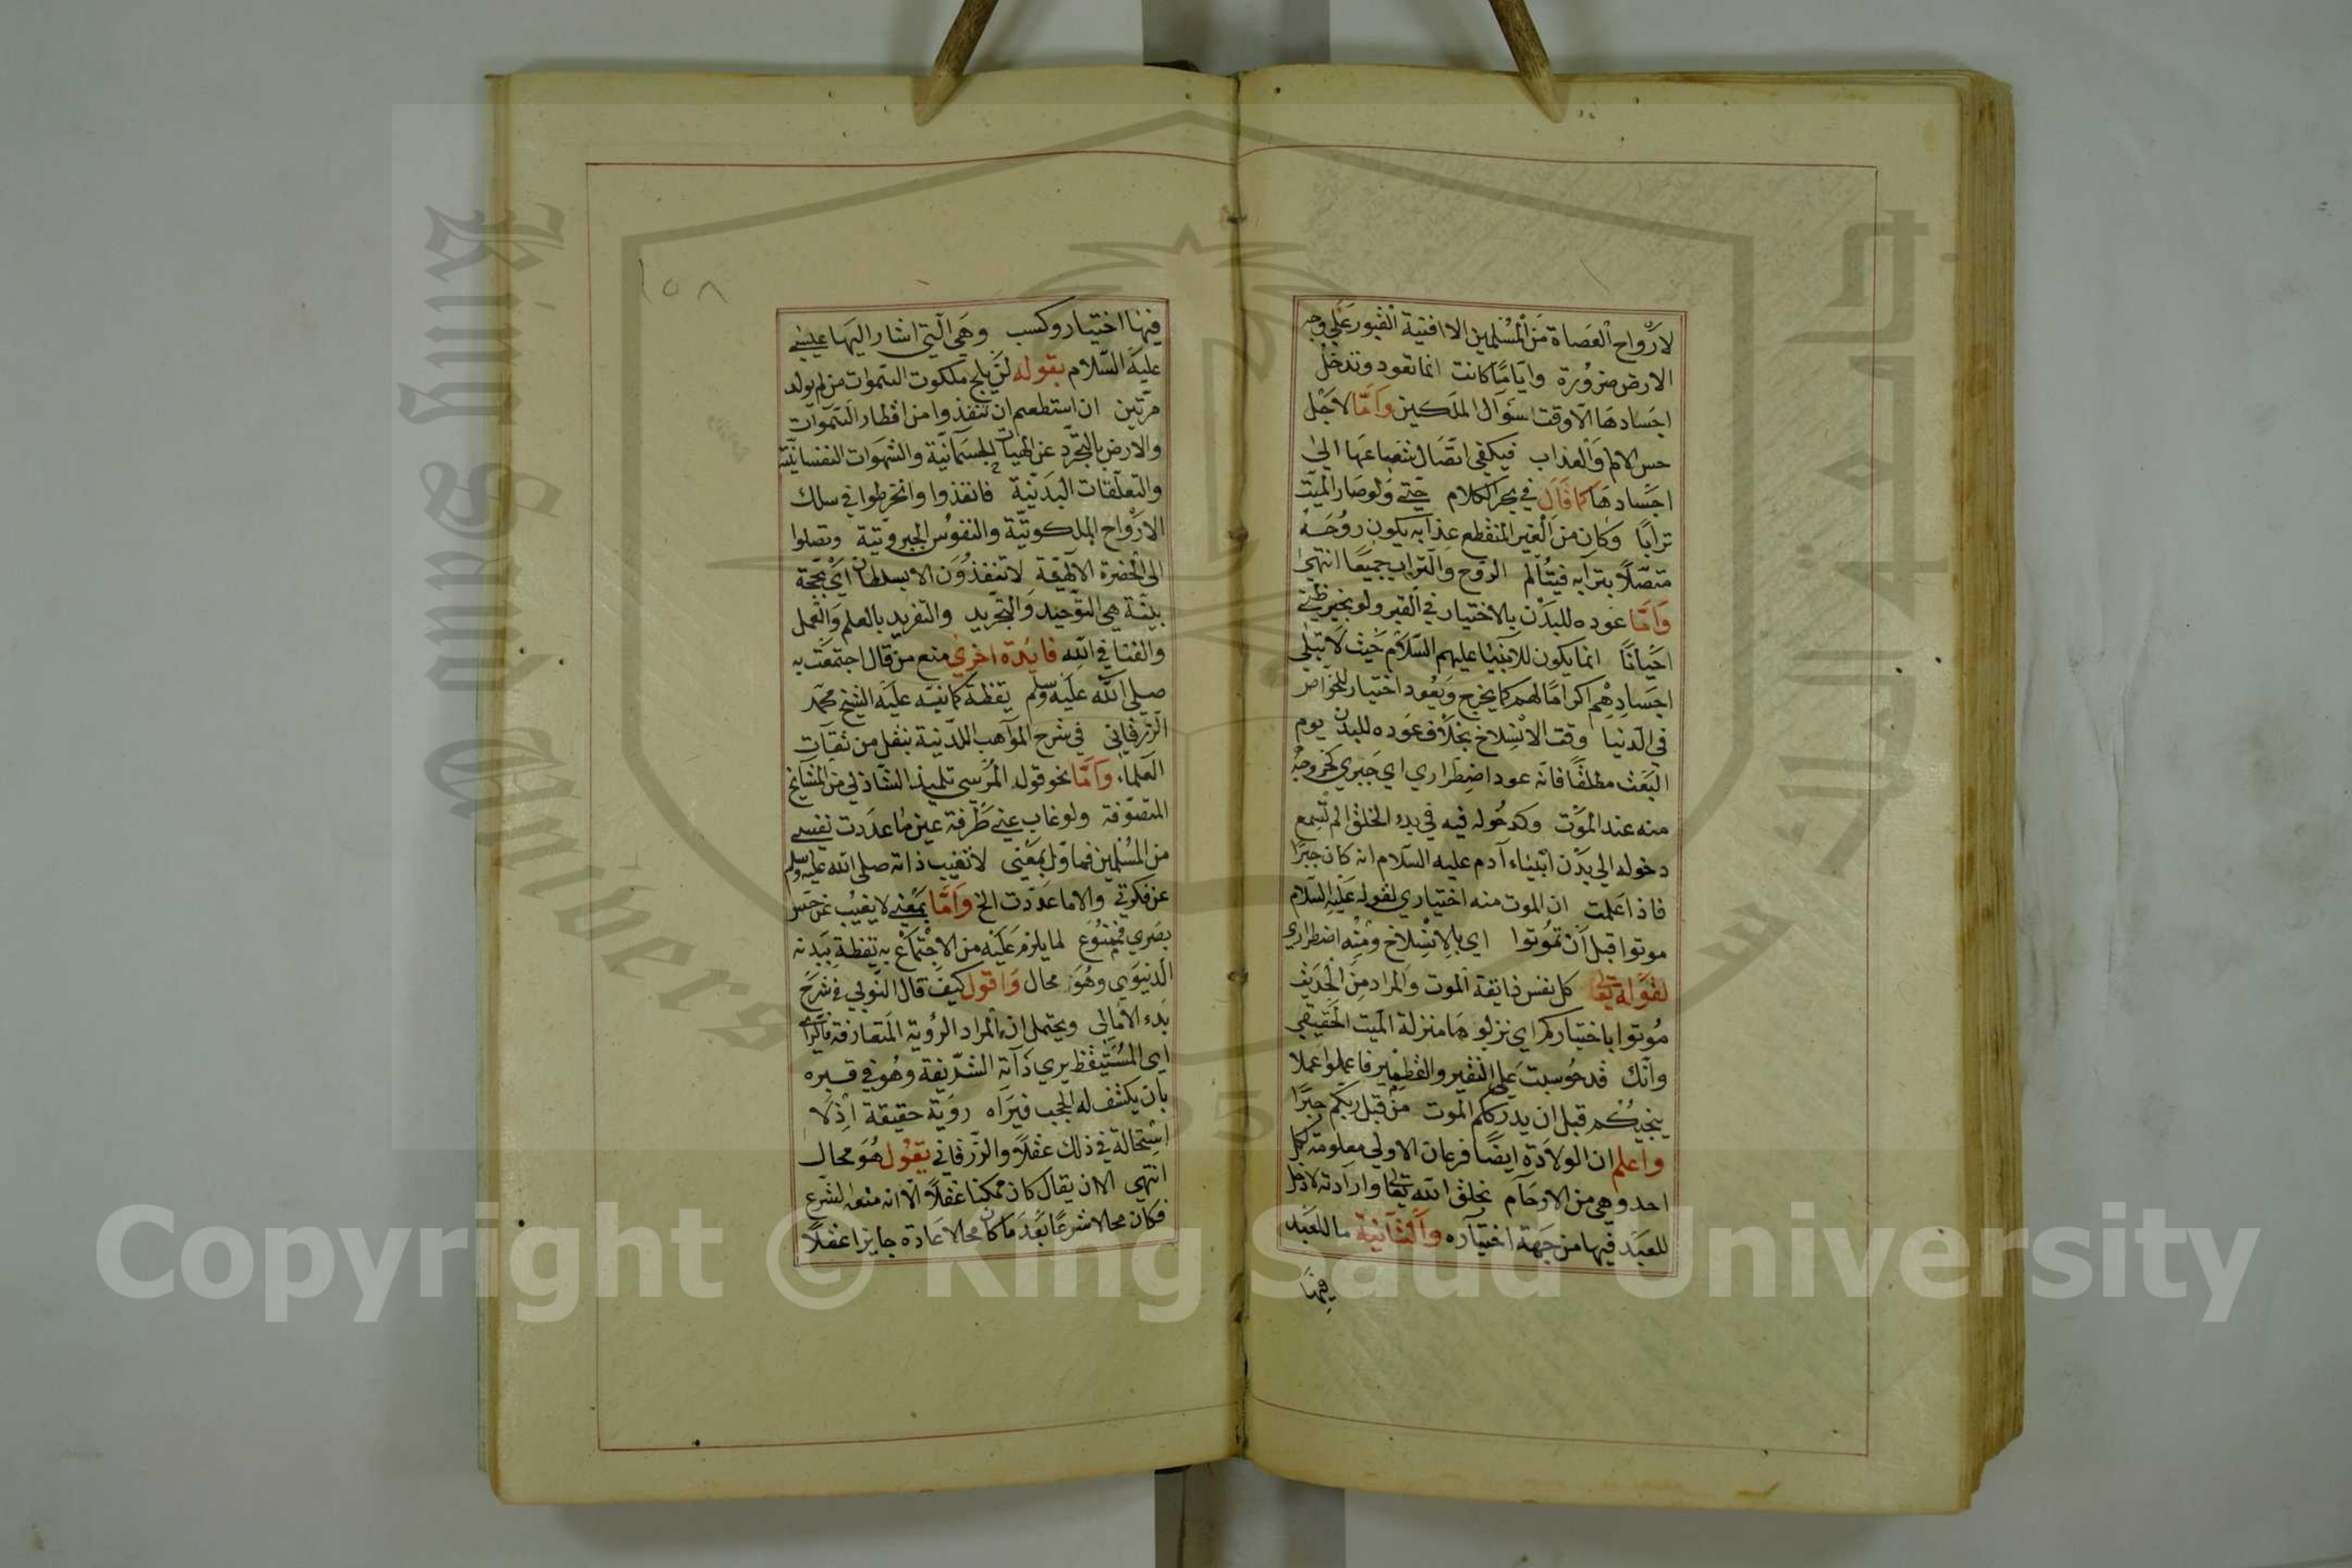 لارواح العصاة من المسلمين الا افنية القبور على وجه
الارض ضرورة وايّامّا كانت انما تعود وتدخل
اجسادها الّا وقت سؤال الملكين وامّا لاجل
حس الالم والعذاب فيكفي اتّصال شعاعها الى
اجسادها كما قال في بحر الكلام حتى ولو صار الميّت
ترابًا وكان من الغير المنقطع عذابه يكون روحه
متصلًا بترابه فيتألم الروح والتراب جميعًا انتهى
وامّا عوده للبدن بالاختيار في القبر ولو بخير ظني
احيانًا انما يكون للانبياء عليهم السّلام حيث لا تبلى
اجسادهم اكرامًا لهم كما يخرج ويعود اختيار للخواص
في الدنيا وقت الانسلاخ بخلاف عوده للبدن يوم
البعث مطلقًا فانه عود اضطراري اي جبري كخروجه
منه عند الموت وكدخوله فيه في بدء الخلق الم تسمع
دخوله الى بدن ابيناء آدم عليه السّلام انه كان جبرًا
فاذا علمت ان الموت منه اختياري لقوله عليه السّلام
موتوا قبل ان تموتوا اي بالانسلاخ ومنه اضطراري
لقوله تعالى كل نفس ذايقة الموت والمراد من الحديث
موتوا باختياركم اي نزلوها منزلة الميت الحقيقي
وانّك قد حوسبت على النقير والقطمير فاعملوا عملا
ينجيكم قبل ان يدرككم الموت من قبل ربكم جبرًا
واعلم ان الولادة ايضًا فرعان الاولى معلومة لكل
احد وهي من الارحام بخلق الله تعالى وارادته لا دخل
للعبد فيها من جهة اختياره والثانية ما للعبد
فيها
١٥٨
فيها اختيار وكسب وهي الّتي اشار اليها عيسى
عليه السّلام بقوله لن يلج ملكوت السّموات من لم يولد
مرّتين ان استطعم ان تنفذوا من اقطار السّموات
والارض بالتجرّد عن الهيات الجسمانيّة والشهوات النفسانيّة
والتعلّقات البدنيّة فانفذوا وانخرطوا في سلك
الارواح الملكوتيّة والنفوس الجبروتيّة وتصلوا
الى الحضرة الالٓهيّة لا تنفذون الا بسلطان اي بحجّة
بيّنة هي التوّحيد والتجريد والتفريد بالعلم والعمل
والفنا في الله فايدة اخرى منع من قال اجتمعت به
صلى الله عليه وسلم يقظة كما نبّه عليه الشيخ محمّد
الزّرقاني في شرح المواهب اللدّنية بنقل من ثقات
العلماء وامّا نحو قول المرسي تلميذ الشّاذلي من المشايخ
المتصوّفة ولو غاب عني طرفة عين ما عددت نفسي
من المسلمين فماوّل بمعنى لا تغيب ذاته صلى الله عليه وسلم
عن فكرتي والا ما عددت الخ وامّا بمعنى لا يغيب عن حس
بصري فممنوع لما يلزم عليه من الاجتماع به يقظة ببدنه
الدنيوي وهو محال واقول كيف قال النّولي في شرح
بدء الامالي ويحتمل ان المراد الرؤية المتعارفة فالرّاي
اي المستيقظ يرى ذاته الشّريفة وهو في قبره
بان يكشف له الحجب فيراه روية حقيقة اذ لا
استحالة في ذلك عقلًا والزّرقاني يقول هو محال
انتهى الا ان يقال كان ممكنا عقلًا الّا انه منعه الشّرع
فكان محالا شرعًا بعد ما كان محالا عادة جايزا عقلًا
Copyright © King Saud University
King Saud University